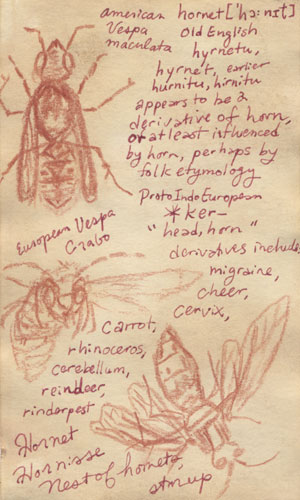 american hornet ['hɔ:nɪt]
Vespa maculata
Old English
hyrnetu,
hyrnet, earlier
hurnitu, hirnitu
appears to be a
derivative of horn,
or at least influenced
by horn, perhaps by
folk etymology
Proto Indo European
*ker-
"head, horn"
derivatives include,
migraine,
cheer,
cervix,
European Vespa
Crabo
carrot,
rhinoceros,
cerebellum,
reindeer,
rinderpest
Hornet
Hornisse
Nest of hornets,
stir up